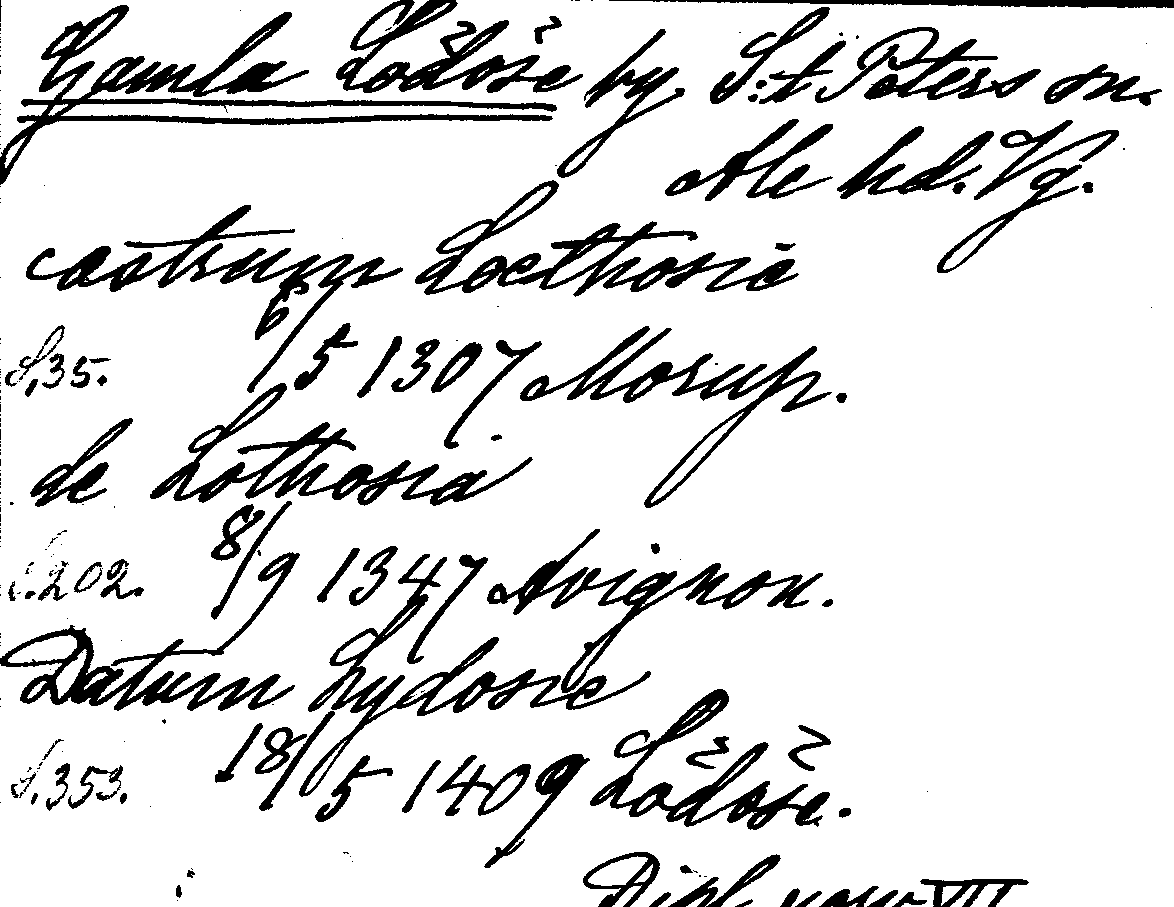 Gamla Lödöse by. S:t Peters sn.
Ale hd. Vg.
castrum Loethosie
S. 35. 6/5 1307 Morup.
de Lothosia
S. 202. 8/9 1347 Avignon.
Datum Lydosie
S. 353. 18/5 1409 Lödöse.
Dipl. norv. VII